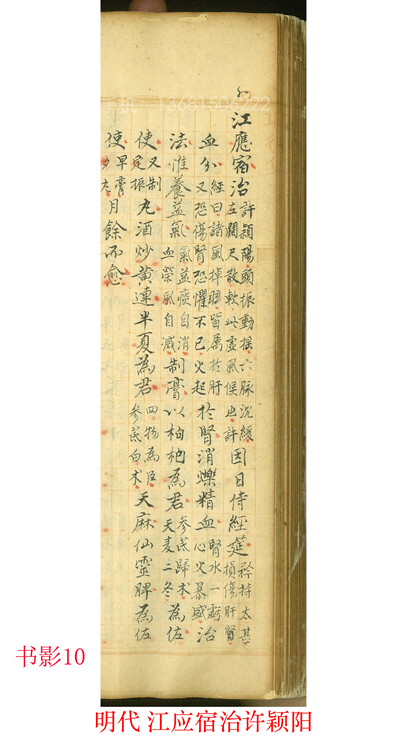 13681506222
江應宿治許潁陽頭振動搖六脉沉緩左關尺散軟此虛風候也許因日侍經筵矜持太甚損傷肝腎
血分經曰諸風掉眩皆属於肝又恐傷腎恐懼不已火起於腎消爍精血腎水一虧心火暴盛治
法惟養益氣氣益痰自消血榮風自滅制膏以枸杞為君參芪歸术天麦二冬為佐
使又制丸酒炒黄連半夏為君四物為臣參芪白术天麻仙靈脾為佐
使早膏夕丸月餘而愈
书影10
明代 江应宿治许颖阳